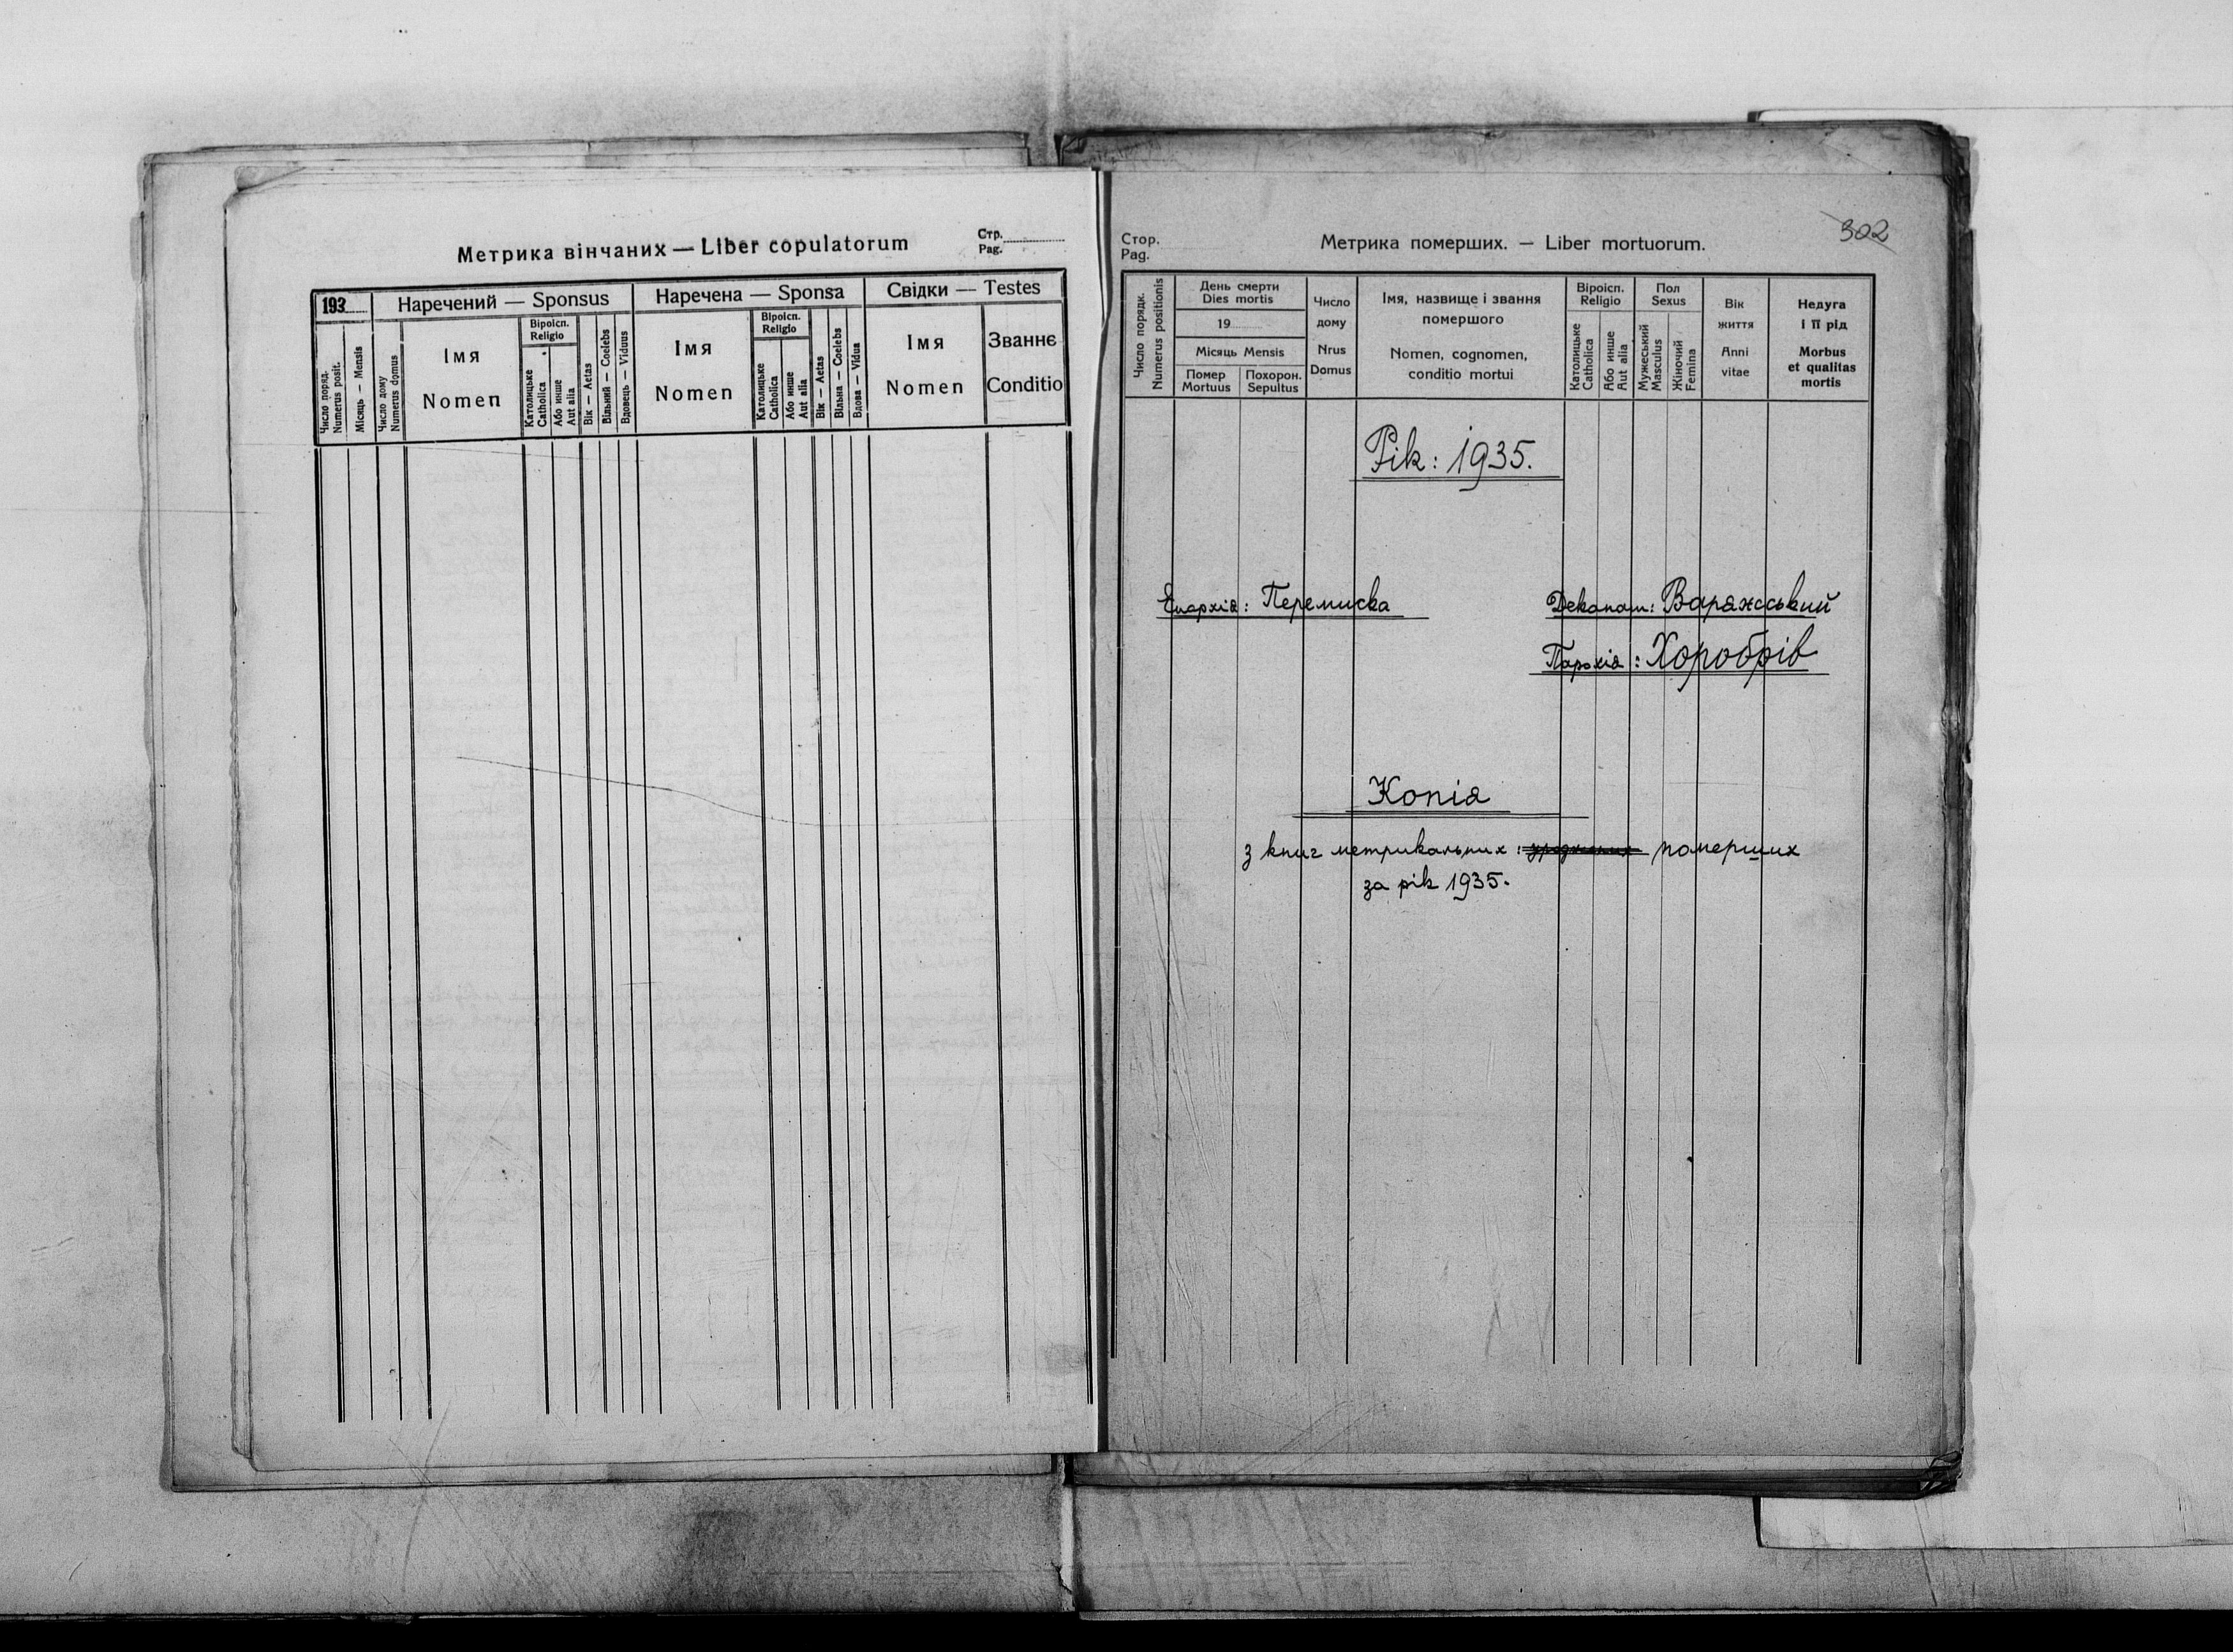 Метрика вінчаних — Liber copulatorum
Стр.
Pag.
193
Наречений — Sponsus
Наречена — Sponsa
Свідки — Testes
Число поряд.
Numerus posit.
Місяць — Mensis
Число дому
Numerus domus
Імя
Nomen
Віроісп.
Religio
Католицьке
Catholica
Або инше
Aut alia
Вік — Aetas
Вільний — Coelebs
Вдовець — Viduus
Імя
Nomen
Віроісп.
Religio
Католицьке
Catholica
Або инше
Aut alia
Вік — Aetas
Вільна — Coelebs
Вдова — Vidua
Імя
Nomen
Званнє
Conditio
302
Стор.
Pag.
Метрика померших. — Liber mortuorum.
Число порядк.
Numerus positionis
День смерти
Dies mortis
19
Місяць Mensis
Помер
Mortuus
Похорон.
Sepultus
Число
дому
Nrus
Domus
Імя, назвище і звання
помершого
Nomen, cognomen,
conditio mortui
Віроісп.
Religio
Католицьке
Catholica
Або инше
Aut alia
Пол
Sexus
Мужеський
Masculus
Жіночий
Femina
Вік
життя
Anni
vitae
Недуга
і її рід
Morbus
et qualitas
mortis
Рік: 1935.
Епархія: Перемиска
Деканат: Варяжський
Парохія: Хоробрів
Копія
з книг метрикальних: померших
за рік 1935.